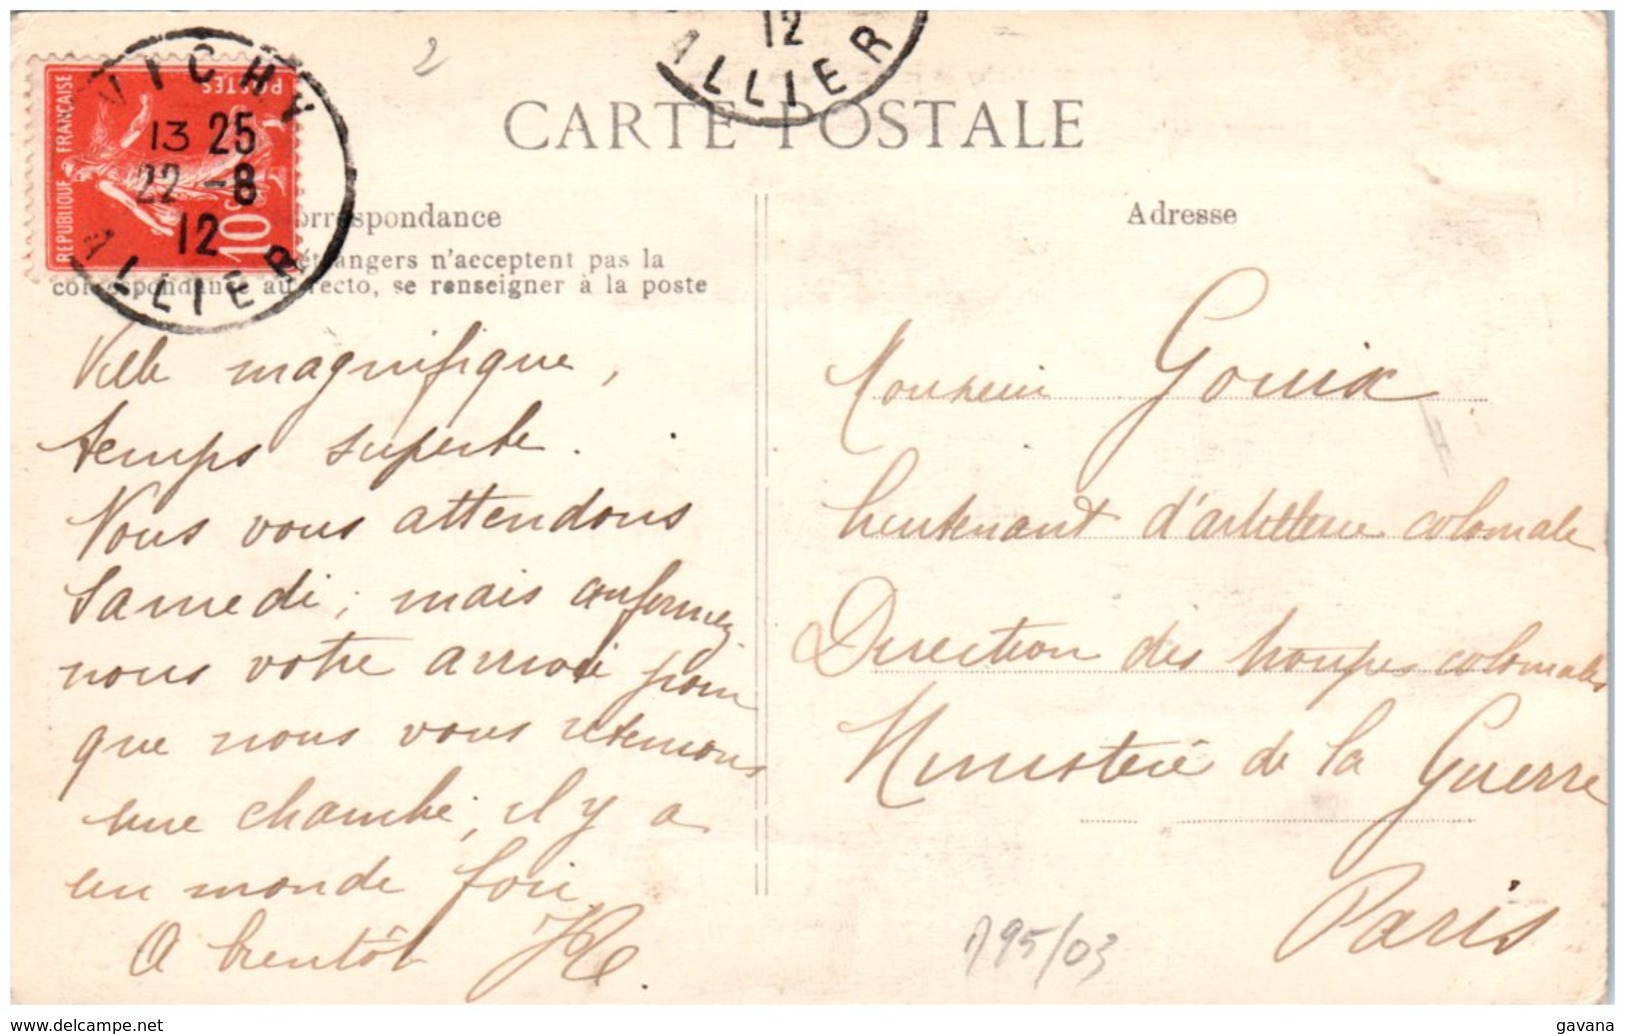 VICHY
13 25
22 -8
12
ALLIER
12
ALLIER
REPUBLIQUE FRANÇAISE
POSTES
10c
2
CARTE POSTALE
orrespondance
étrangers n'acceptent pas la
correspondance au recto, se renseigner à la poste
Adresse
Ville magnifique,
temps superbe.
Nous vous attendons
Samedi, mais confirmez
nous votre arrivée pour
que nous vous retenions
une chambre, il y a
un monde fou
A bientôt
Monsieur Gouix
Lieutenant d'artillerie coloniale
Direction des troupes coloniales
Ministère de la Guerre
Paris
95/03
delcampe.net
gavana